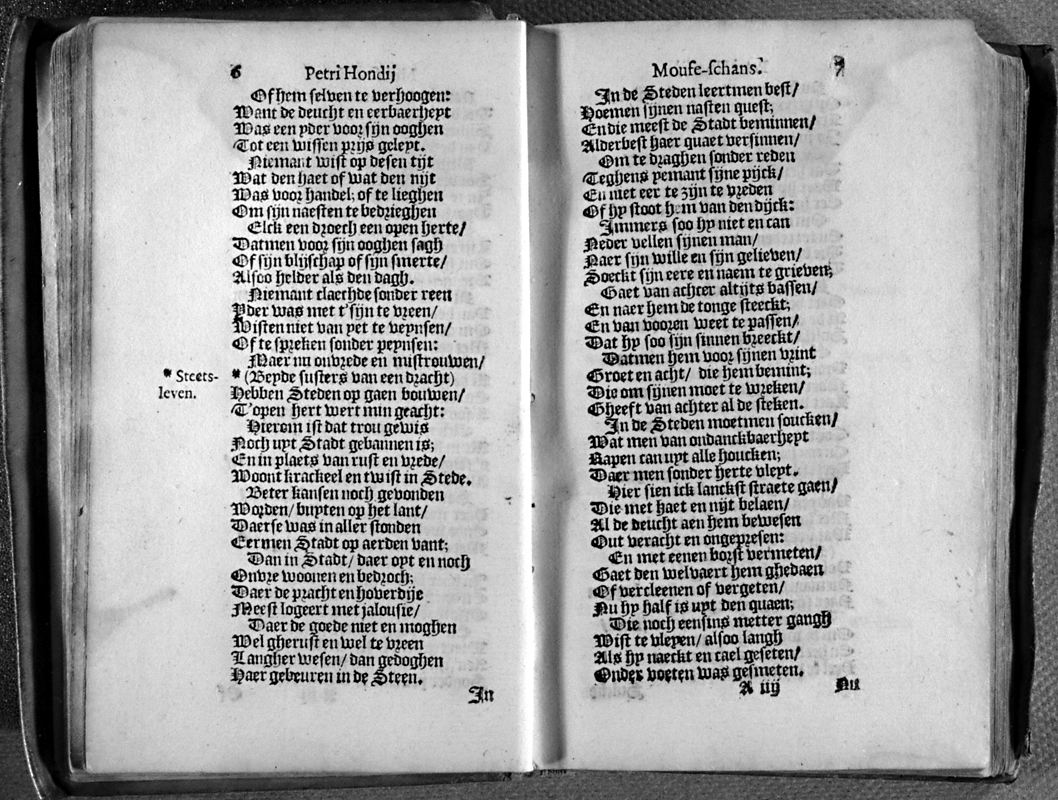 6 Petri Hondij
Of hem selven te verhoogen:
Want de deucht en eerbaerheyt
Was een yder voor sijn ooghen
Tot een wissen prijs geleyt.
Niemant wist op desen tijt
Wat den haet of wat den nijt
Was voor handel; of te lieghen
Om sijn naesten te bedrieghen
Elck een droech een open herte/
Datmen voor sijn ooghen sagh
Of sijn blijschap of sijn smerte/
Alsoo helder als den dagh.
Niemant claechde sonder reen
Yder was met t'sijn te vreen/
Wisten niet van yet te veynsen/
Of te spreken sonder peynsen:
Maer nu onvrede en mistrouwen/
* Steets-
leven.
* (Beyde susters van een dracht)
Hebben Steden op gaen bouwen/
T'open hert wert min geacht:
Hierom ist dat trou gewis
Noch uyt Stadt gebannen is;
En in plaets van rust en vrede/
Woont krackeel en twist in Stede.
Beter kansen noch gevonden
Worden/ buyten op het lant/
Daerse was in aller stonden
Eermen Stadt op aerden vant;
Dan in Stadt/ daer opt en noch
Onvre woonen en bedroch;
Daer de pracht en hoverdije
Meest logeert met jalousie/
Daer de goede niet en moghen
Wel gherust en wel te vreen
Langher wesen/ dan gedoghen
Haer gebeuren in de Steen.
In
Mouse-schans. 7
In de Steden leertmen best/
Hoemen sijnen nasten quest;
En die meest de Stadt beminnen/
Alderbest haer quaet versinnen/
Om te draghen sonder reden
Teghens yemant sijne pijck/
En met eer te zijn te vreden
Of hy stoot hem van den dijck:
Immers soo hy niet en can
Neder vellen sijnen man/
Naer sijn wille en sijn gelieven/
Soeckt sijn eere en naem te grieven;
Gaet van achter altijts bassen/
En naer hem de tonge steeckt;
En van vooren weet te passen/
Dat hy soo sijn sinnen breeckt/
Datmen hem voor sijnen vrint
Groet en acht/ die hem bemint;
Die om sijnen moet te wreken/
Gheeft van achter al de steken.
In de Steden moetmen soucken/
Wat men van ondanckbaerheyt
Rapen can uyt alle houcken;
Daer men sonder herte vleyt.
Hier sien ick lanckst straete gaen/
Die met haet en nijt belaen/
Al de deucht aen hem bewesen
Out veracht en ongepresen:
En met eenen borst vermeten/
Gaet den welvaert hem ghedaen
Of vercleenen of vergeten/
Nu hy half is uyt den quaen;
Die noch eensins metter gangh
Wist te vleyen/ alsoo langh
Als hy naeckt en cael geseten/
Onder voeten was gesmeten.
A iiij Nu